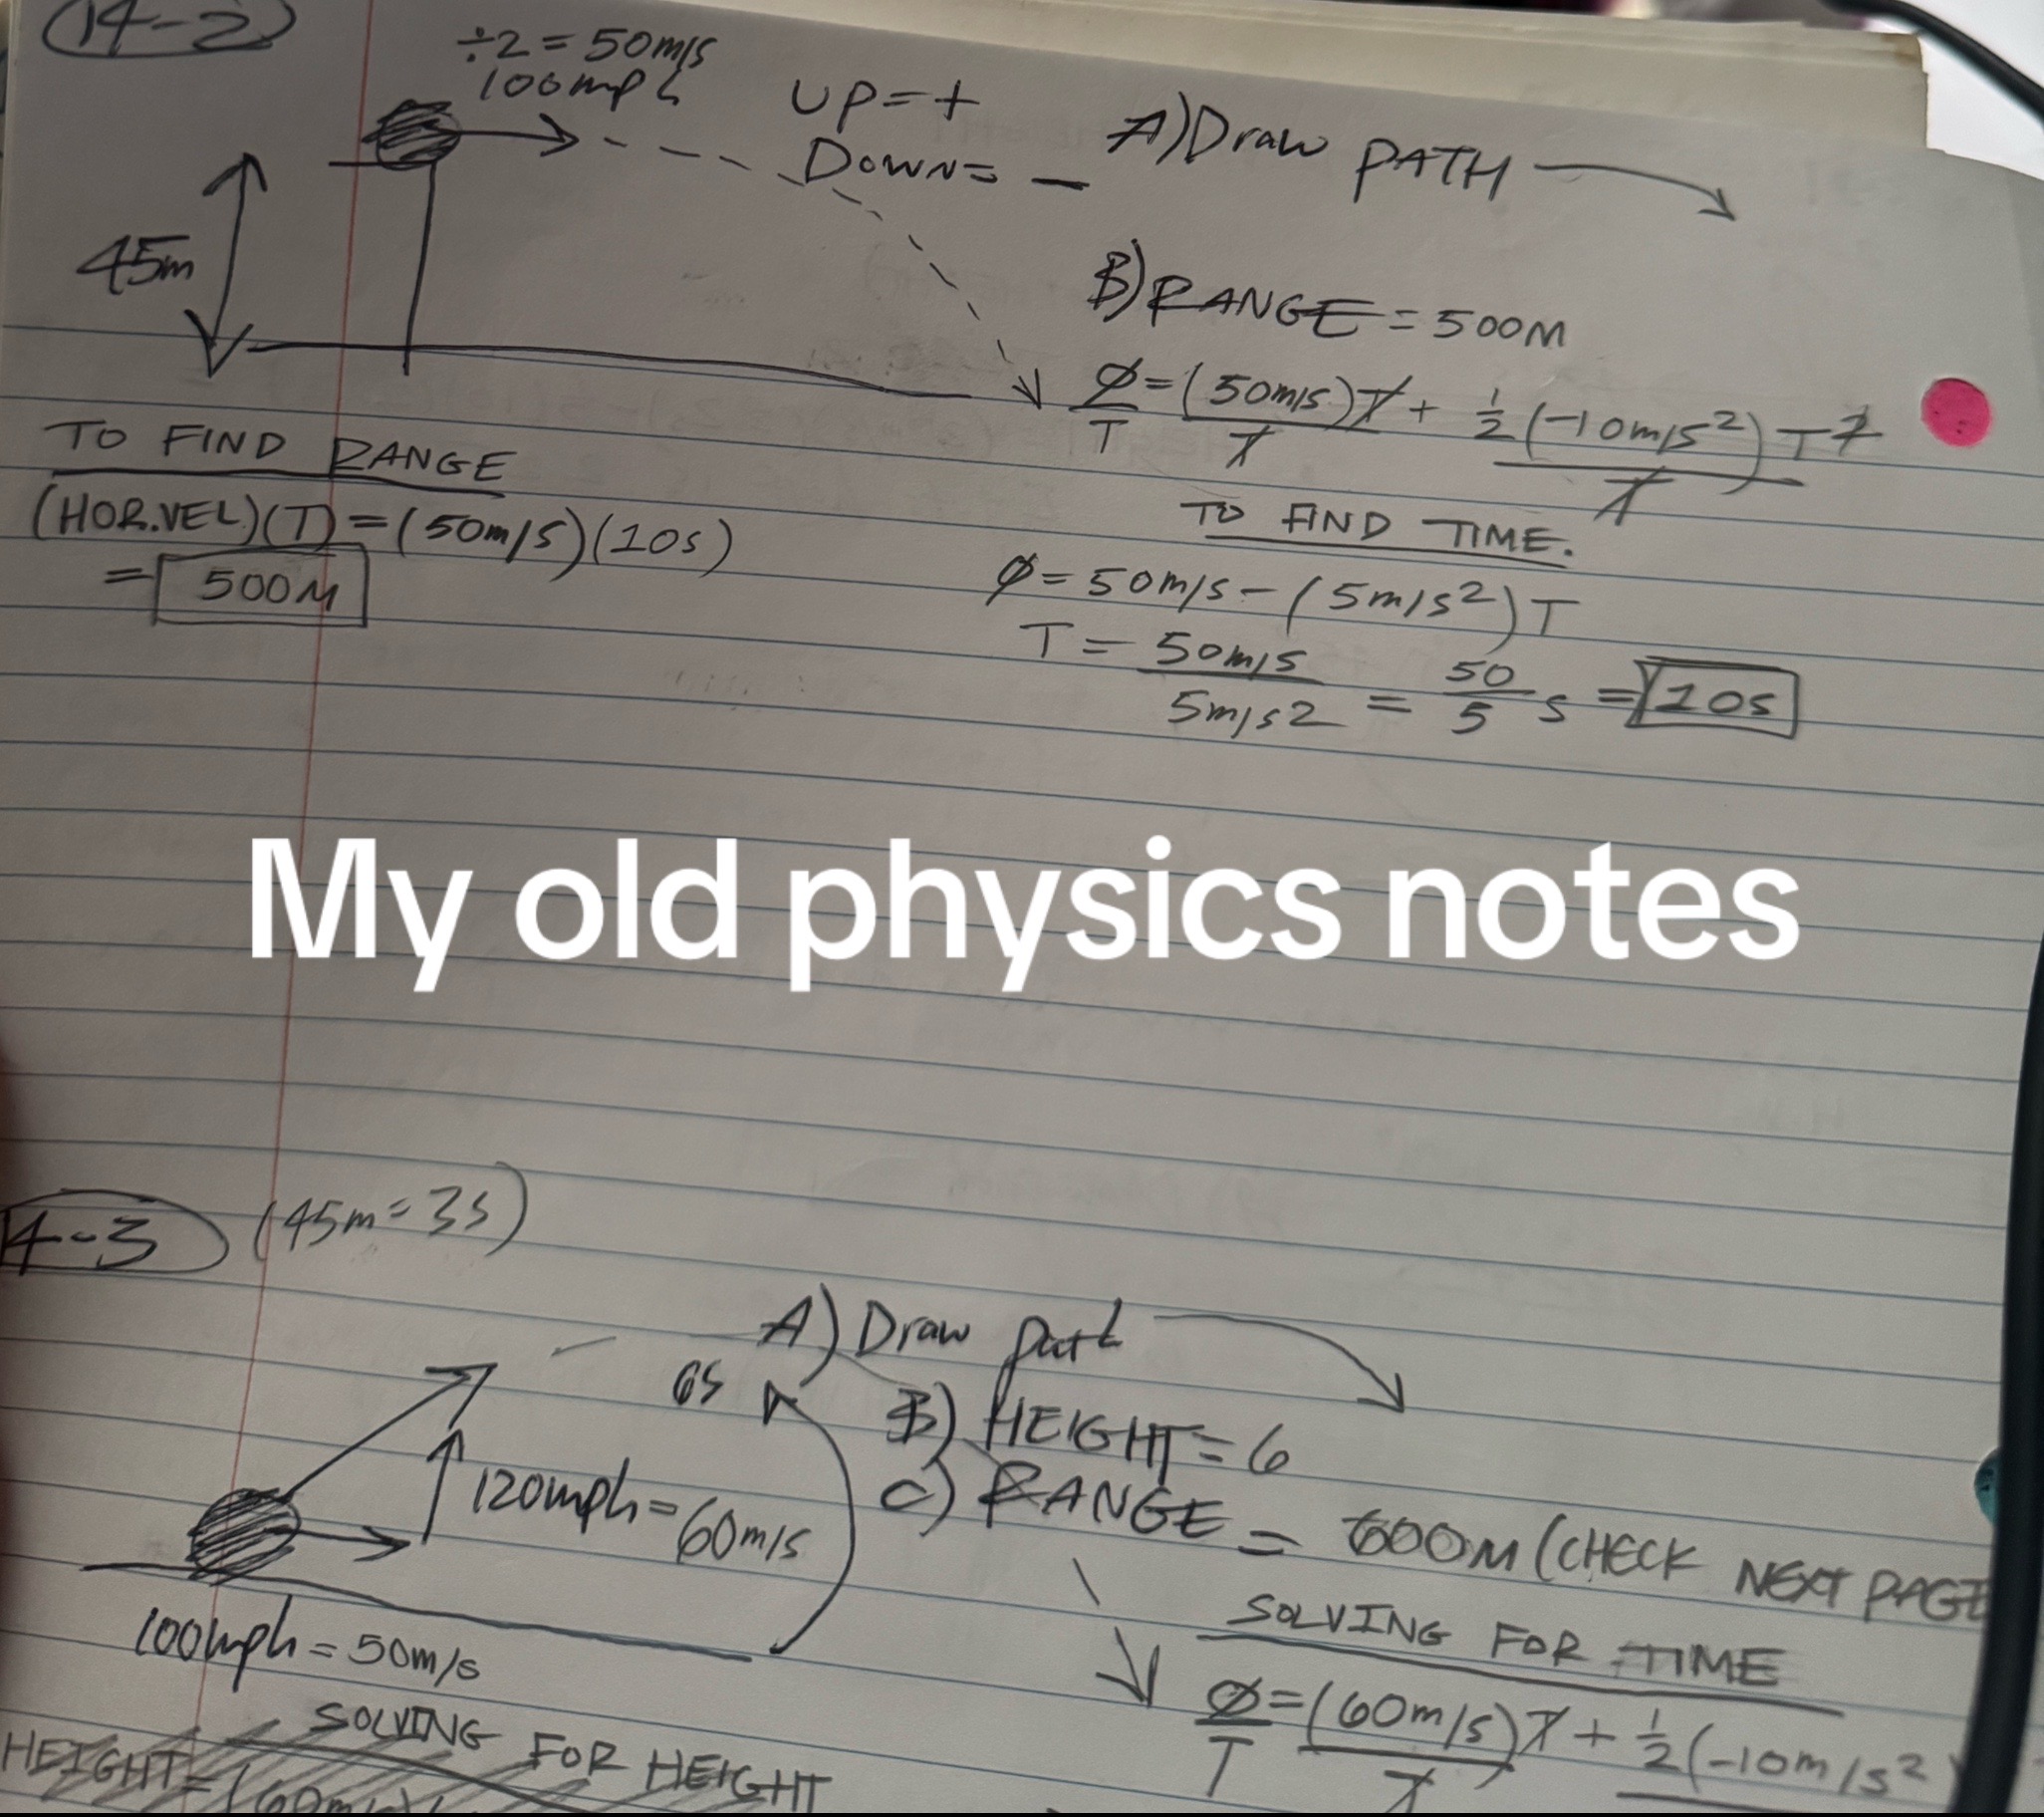 14-2
÷2=50m/s
100mph
UP=+
DOWN= -
A) Draw PATH
45m
B) RANGE = 500M
Ø/T = (50m/s)T/T + 1/2(-10m/s²)T²/T
TO FIND TIME.
Ø = 50m/s - (5m/s²)T
T = 50m/s / 5m/s2 = 50/5 s = 10s
TO FIND RANGE
(HOR.VEL)(T) = (50m/s)(10s)
= 500M
My old physics notes
4-3 (45m=3s)
A) Draw path
6s
B) HEIGHT = 6
C) RANGE = 600M (CHECK NEXT PAGE
120mph = 60m/s
100mph = 50m/s
SOLVING FOR TIME
Ø/T = (60m/s)T/T + 1/2(-10m/s²
SOLVING FOR HEIGHT
HEIGHT = (60m/s)